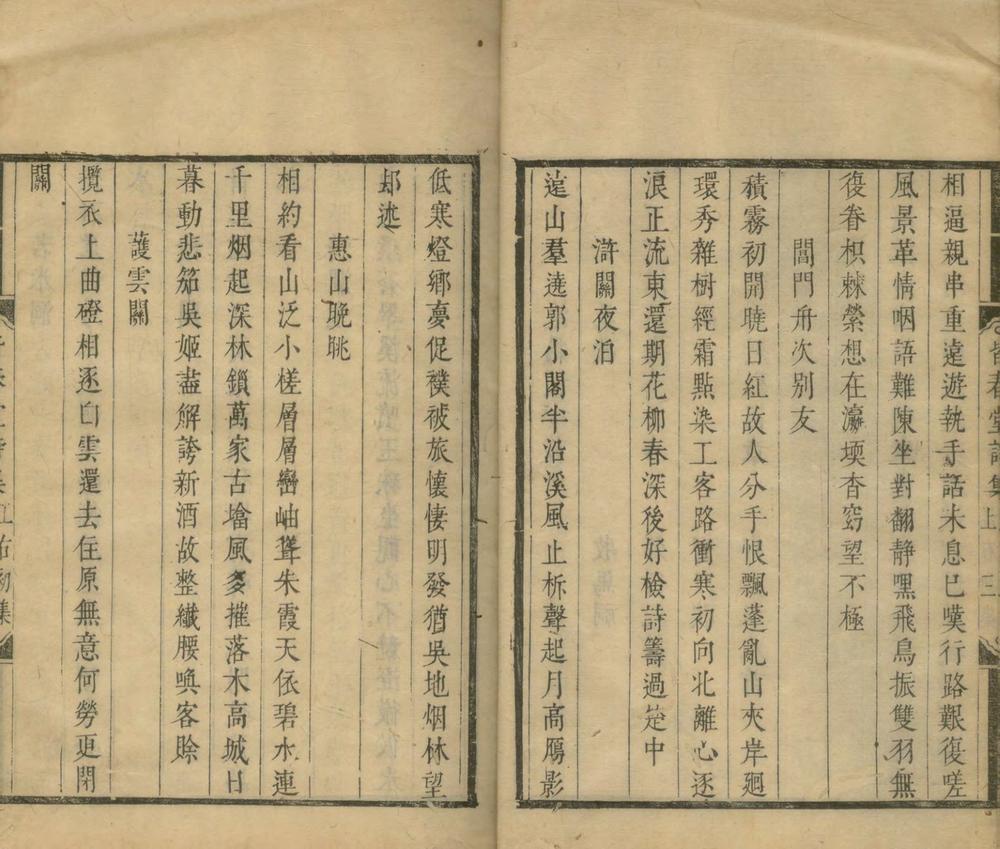 相逼親串重遠遊執手話未息已嘆行路艱復嗟
風景革情咽語難陳坐對翻靜嘿飛鳥振雙羽無
復眷枳棘縈想在瀛堧杳窈望不極
閶門舟次別友
積霧初開曉日紅故人分手恨飄蓬亂山夾岸廻
環秀雜樹經霜點染工客路衝寒初向北離心逐
浪正流東還期花柳春深後好檢詩籌過筵中
滸關夜泊
遠山羣遶郭小閣半沿溪風止柝聲起月高鴈影
低寒燈鄉夢促襆被旅懷悽明發猶吳地烟林望
却迷
惠山晚眺
相約看山泛小槎層層巒岫聳朱霞天依碧水連
千里烟起深林鎖萬家古墖風多摧落木高城日
暮動悲笳吳姬盡解誇新酒故整纖腰喚客賒
護雲關
攬衣上曲磴相逐白雲還去住原無意何勞更閉
關